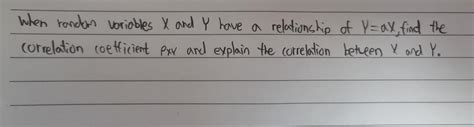 When random variables X and Y have a relationship of Y=aX, find the
correlation coefficient ρxy and explain the correlation between X and Y.